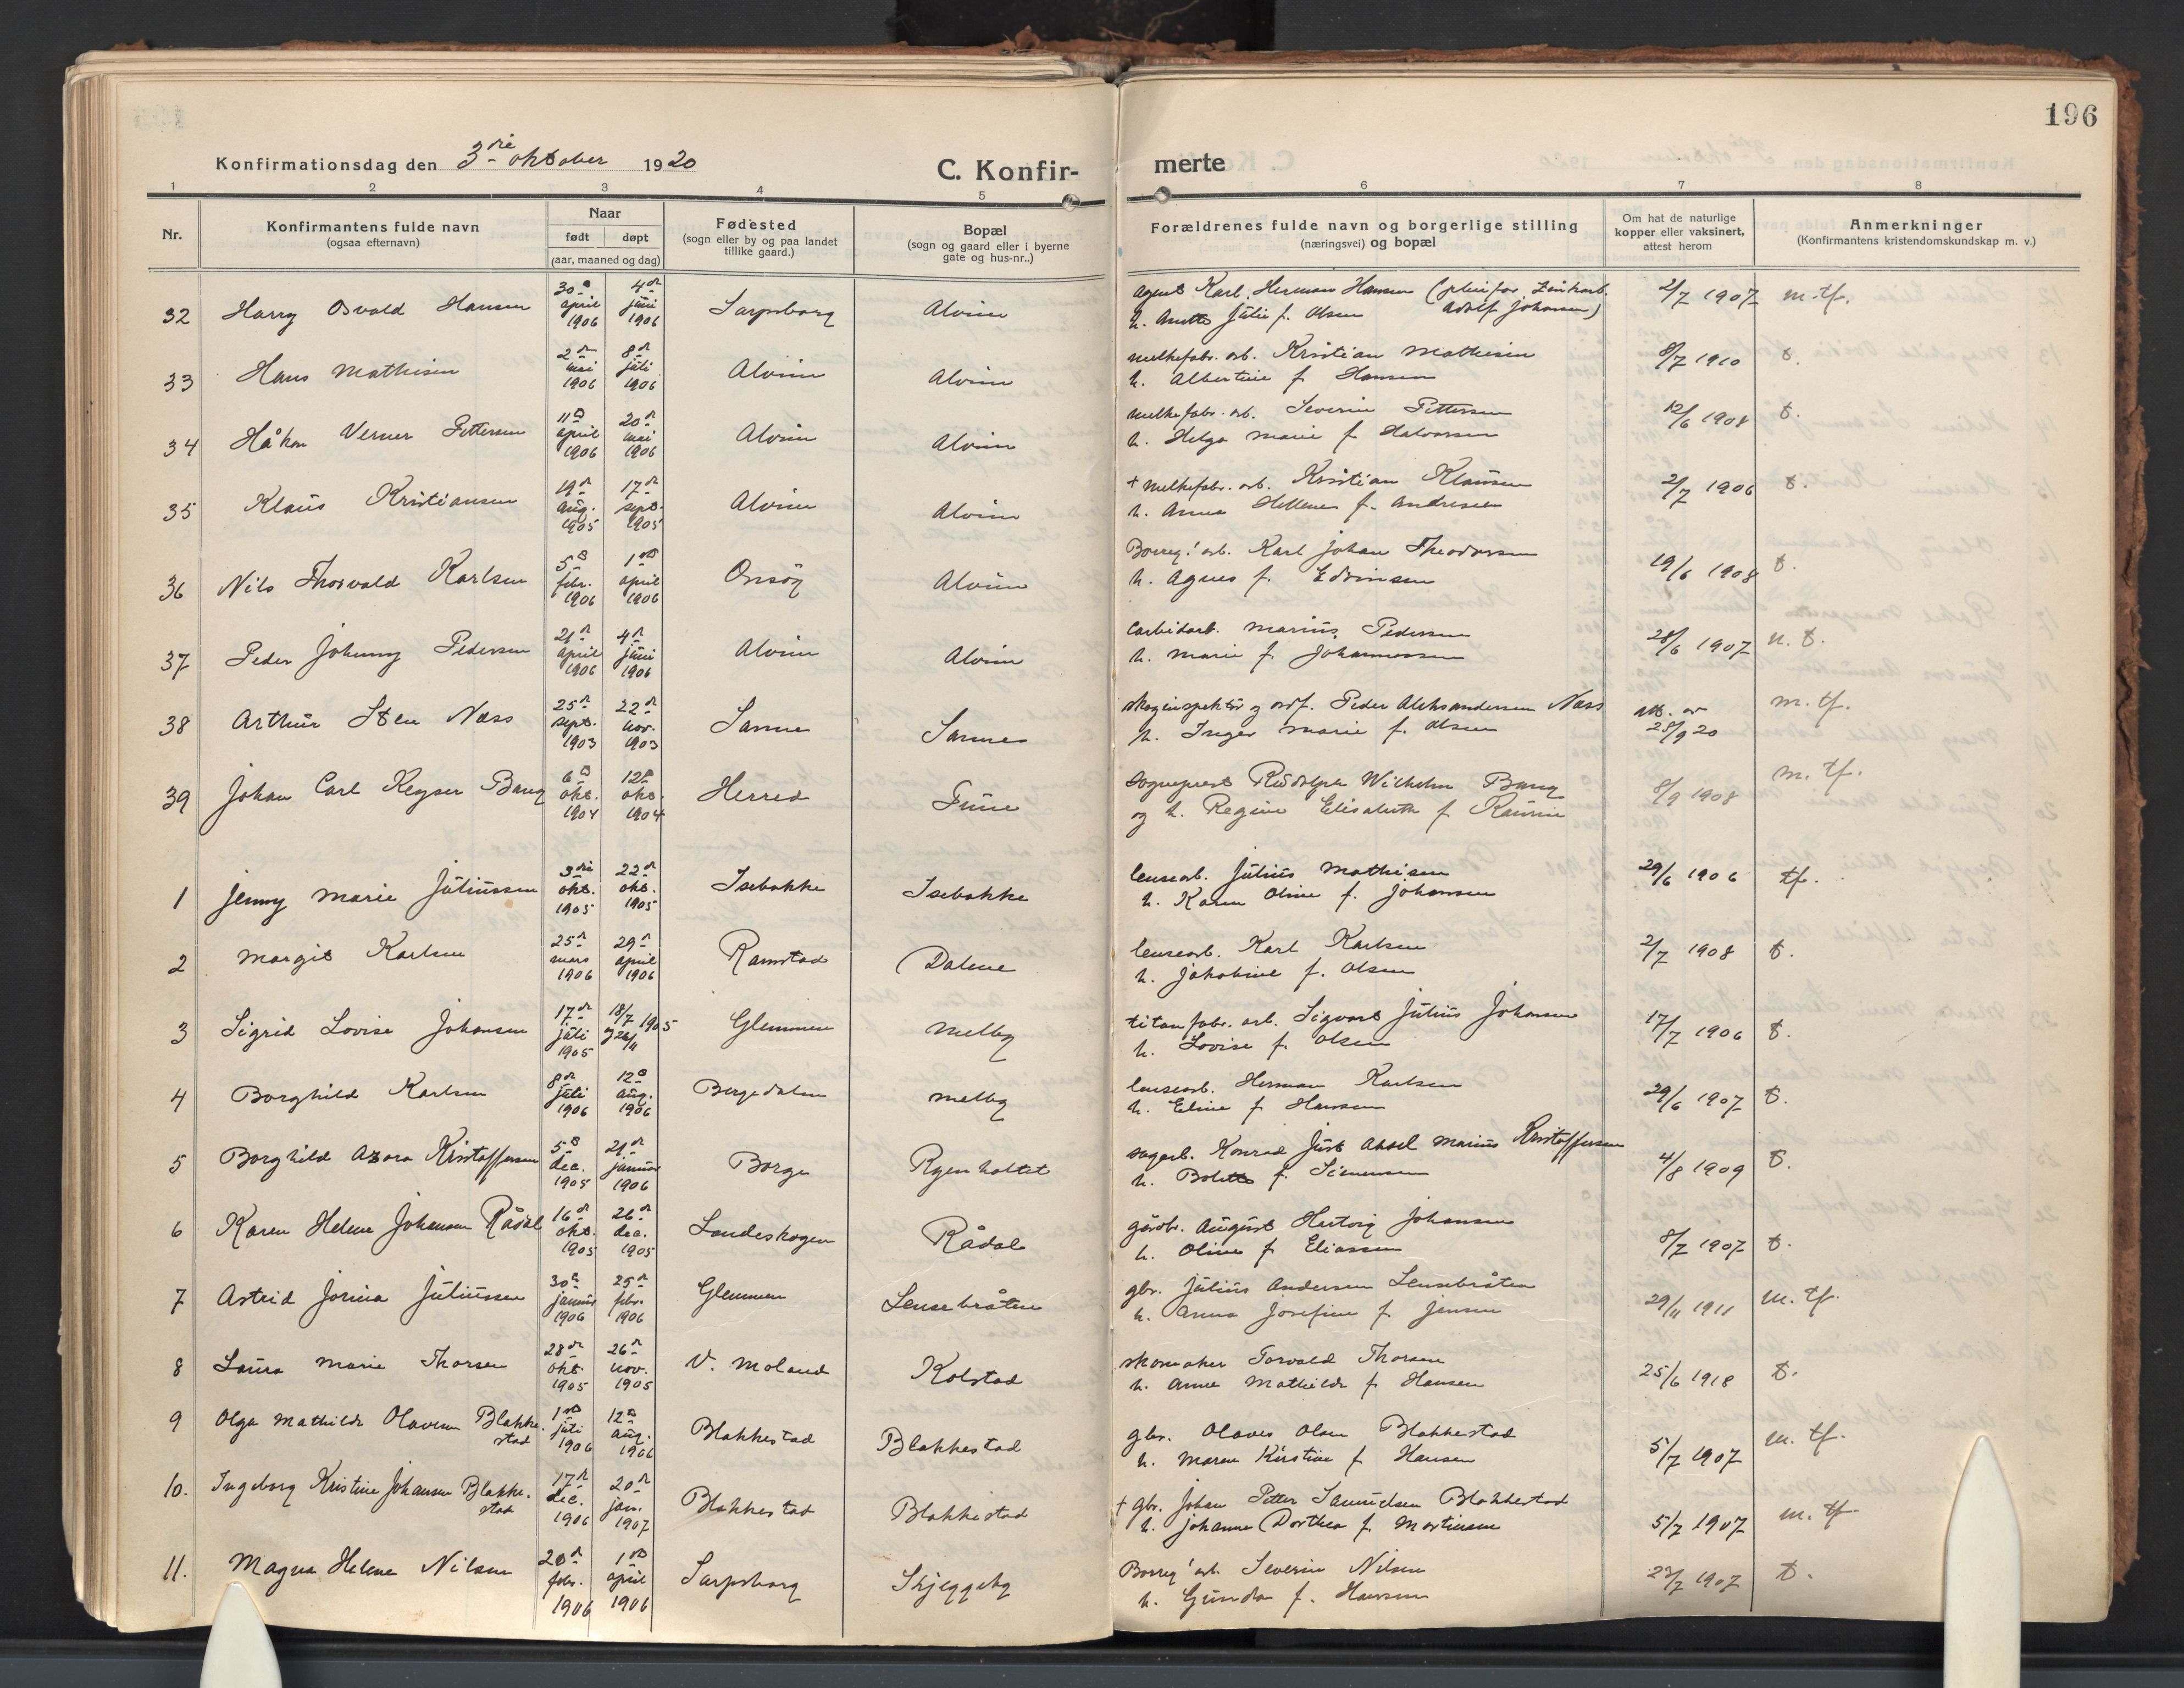 196
Konfirmationsdag den 3die oktober 1920
C. Konfirmerte
1 2 3 4 5 6 7 8
Nr.
Konfirmantens fulde navn
(ogsaa efternavn)
Naar
født døpt
(aar, maaned og dag)
Fødested
(sogn eller by og paa landet
tillike gaard.)
Bopæl
(sogn og gaard eller i byerne
gate og hus-nr..)
Forældrenes fulde navn og borgerlige stilling
(næringsvei) og bopæl
Om hat de naturlige
kopper eller vaksinert,
attest herom
Anmerkninger
(Konfirmantens kristendomskundskap m. v.)
32 Harry Osvald Hansen 30 april 1906 4 juni 1906 Sarpsborg Alvim agent Karl Herman Hansen (pleiefar Zinkarb. Adolf Johansen)
h. Anette Julie f. Olsen 2/7 1907 m. tf.
33 Hans Mathisen 2 mai 1906 8 juli 1906 Alvim Alvim melkefabr. arb. Kristian Mathisen
h. Albertine f. Hansen 8/7 1910 t.
34 Håkon Verner Pettersen 11 april 1906 20 mai 1906 Alvim Alvim melkefabr. arb. Severin Pettersen
h. Helga Marie f. Halvorsen 12/6 1908 t.
35 Klaus Kristiansen 19 aug. 1905 17 sept. 1905 Alvim Alvim + melkefabr. arb. Kristian Klausen
h. Anna Hellene f. Andresen 2/7 1906 t.
36 Nils Thorvald Karlsen 5 febr. 1906 1 april 1906 Onsøy Alvim Borreg! arb. Karl Johan Theodorsen
h. Agnes f. Edvinsen 19/6 1908 t.
37 Peder Johnny Pedersen 21 april 1906 4 juni 1906 Alvim Alvim Carbidarb. Marius Pedersen
h. Marie f. Johannessen 28/6 1907 n. t.
38 Arthur Sten Næss 25 sept. 1903 22 nov. 1903 Sanne Sannes skoginspektør og ordf. Peder Aleksandersen Næss
h. Inger Marie f. Olsen att. av 28/9 20 m. tf.
39 Johan Carl Keyser Bang 6 okt. 1904 12 okt. 1904 Herred Tune Sogneprest Rudolph Wilhelm Bang
og h. Regine Elisabeth f. 8/9 1908 m. tf.
1 Jenny Marie Juliussen 3die okt. 1905 22 okt. 1905 Isebakke Isebakke lensearb. Julius Mathisen
h. Karen Oline f. Johansen 29/6 1906 tf.
2 Margit Karlsen 25 mars 1906 29 april 1906 Ramstad Dalene lensearb. Karl Karlsen
h. Jakobine f. Olsen 2/7 1908 t.
3 Sigrid Lovise Johansen 17 juli 1905 18/7 1905 og 26/11 Glemmen Melby titanfabr. arb. Sigvart Julius Johansen
h. Lovise f. Olsen 17/7 1906 t.
4 Borghild Karlsen 8 juli 1906 12 aug. 1906 Bergedalen Melby lensearb. Herman Karlsen
h. Eline f. Hansen 29/6 1907 t.
5 Borghild Azora Kristoffersen 5 dec. 1905 21 januar 1906 Borge Rgenholtet sagarb. Konrad Just Aksel Marius Kristoffersen
h. Bolette f. Simensen 4/8 1909 t.
6 Karen Helene Johansen Rådal 16 okt. 1905 26 dec. 1905 Landeskogen Rådal gårdbr. August Hertvig Johansen
h. Oline f. Eliassen 8/7 1907 t.
7 Astrid Jorina Juliussen 30 januar 1906 25 febr. 1906 Glemmen Lensebråten gbr. Julius Andersen Lensebråten
h. Anna Josefine f. Jensen 29/11 1911 m. tf.
8 Laura Marie Thorsen 28 okt. 1905 26 nov. 1905 V. Moland Kolstad skomaker Torvald Thorsen
h. Anne Mathilde f. Hansen 25/6 1918 t.
9 Olga Mathilde Olavesen Blakkestad 1 juli 1906 12 aug. 1906 Blakkestad Blakkestad gbr. Olaves Olsen Blakkestad
h. Maren Kirstine f. Hansen 5/7 1907 m. tf.
10. Ingeborg Kristine Johansen Blakkestad 17 dec. 1906 20 jan. 1907 Blakkestad Blakkestad + gbr. Johan Petter Samuelsen Blakkestad
h. Johanne Dorthea f. Martinsen 5/7 1907 m. tf
11. Magna Helene Nilsen 20 febr. 1906 1 april 1906 Sarpsborg Skjeggeby Borreg! arb. Severin Nilsen
h. Gunda f. Hansen 23/7 1907 t.